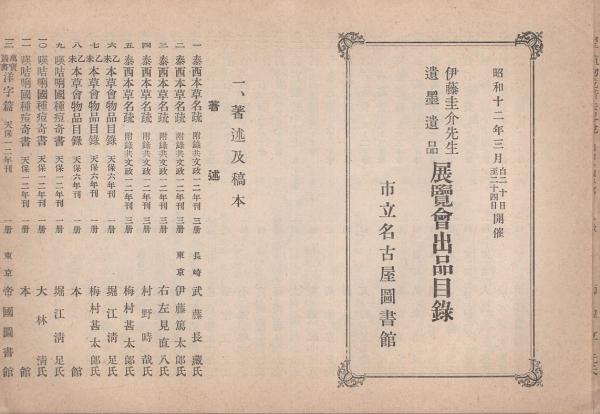 昭和十二年三月自二十日至二十四日開催
伊藤圭介先生遺墨遺品展覽會出品目錄
市立名古屋圖書館
一、著述及稿本
著述
一 泰西本草名疏 附錄共文政一二年刊 三册 長崎 武藤長藏氏
二 泰西本草名疏 附錄共文政一二年刊 三册 東京 伊藤篤太郎氏
三 泰西本草名疏 附錄共文政一二年刊 三册 右左見直八氏
四 泰西本草名疏 附錄共文政一二年刊 三册 村野時哉氏
五 泰西本草名疏 附錄共文政一二年刊 三册 梅村甚太郎氏
六 乙未本草會物品目錄 天保六年刊 一册 堀江淸足氏
七 乙未本草會物品目錄 天保六年刊 一册 梅村甚太郎氏
八 乙未本草會物品目錄 天保六年刊 一册 本館
九 暎咭唎國種痘奇書 天保一二年刊 一册 堀江淸足氏
一〇 暎咭唎國種痘奇書 天保一二年刊 一册 大林淸氏
一一 暎咭唎國種痘奇書 天保一二年刊 一册 本館
一二 萬寶叢書洋字篇 天保一二年刊 一册 東京 帝國圖書館